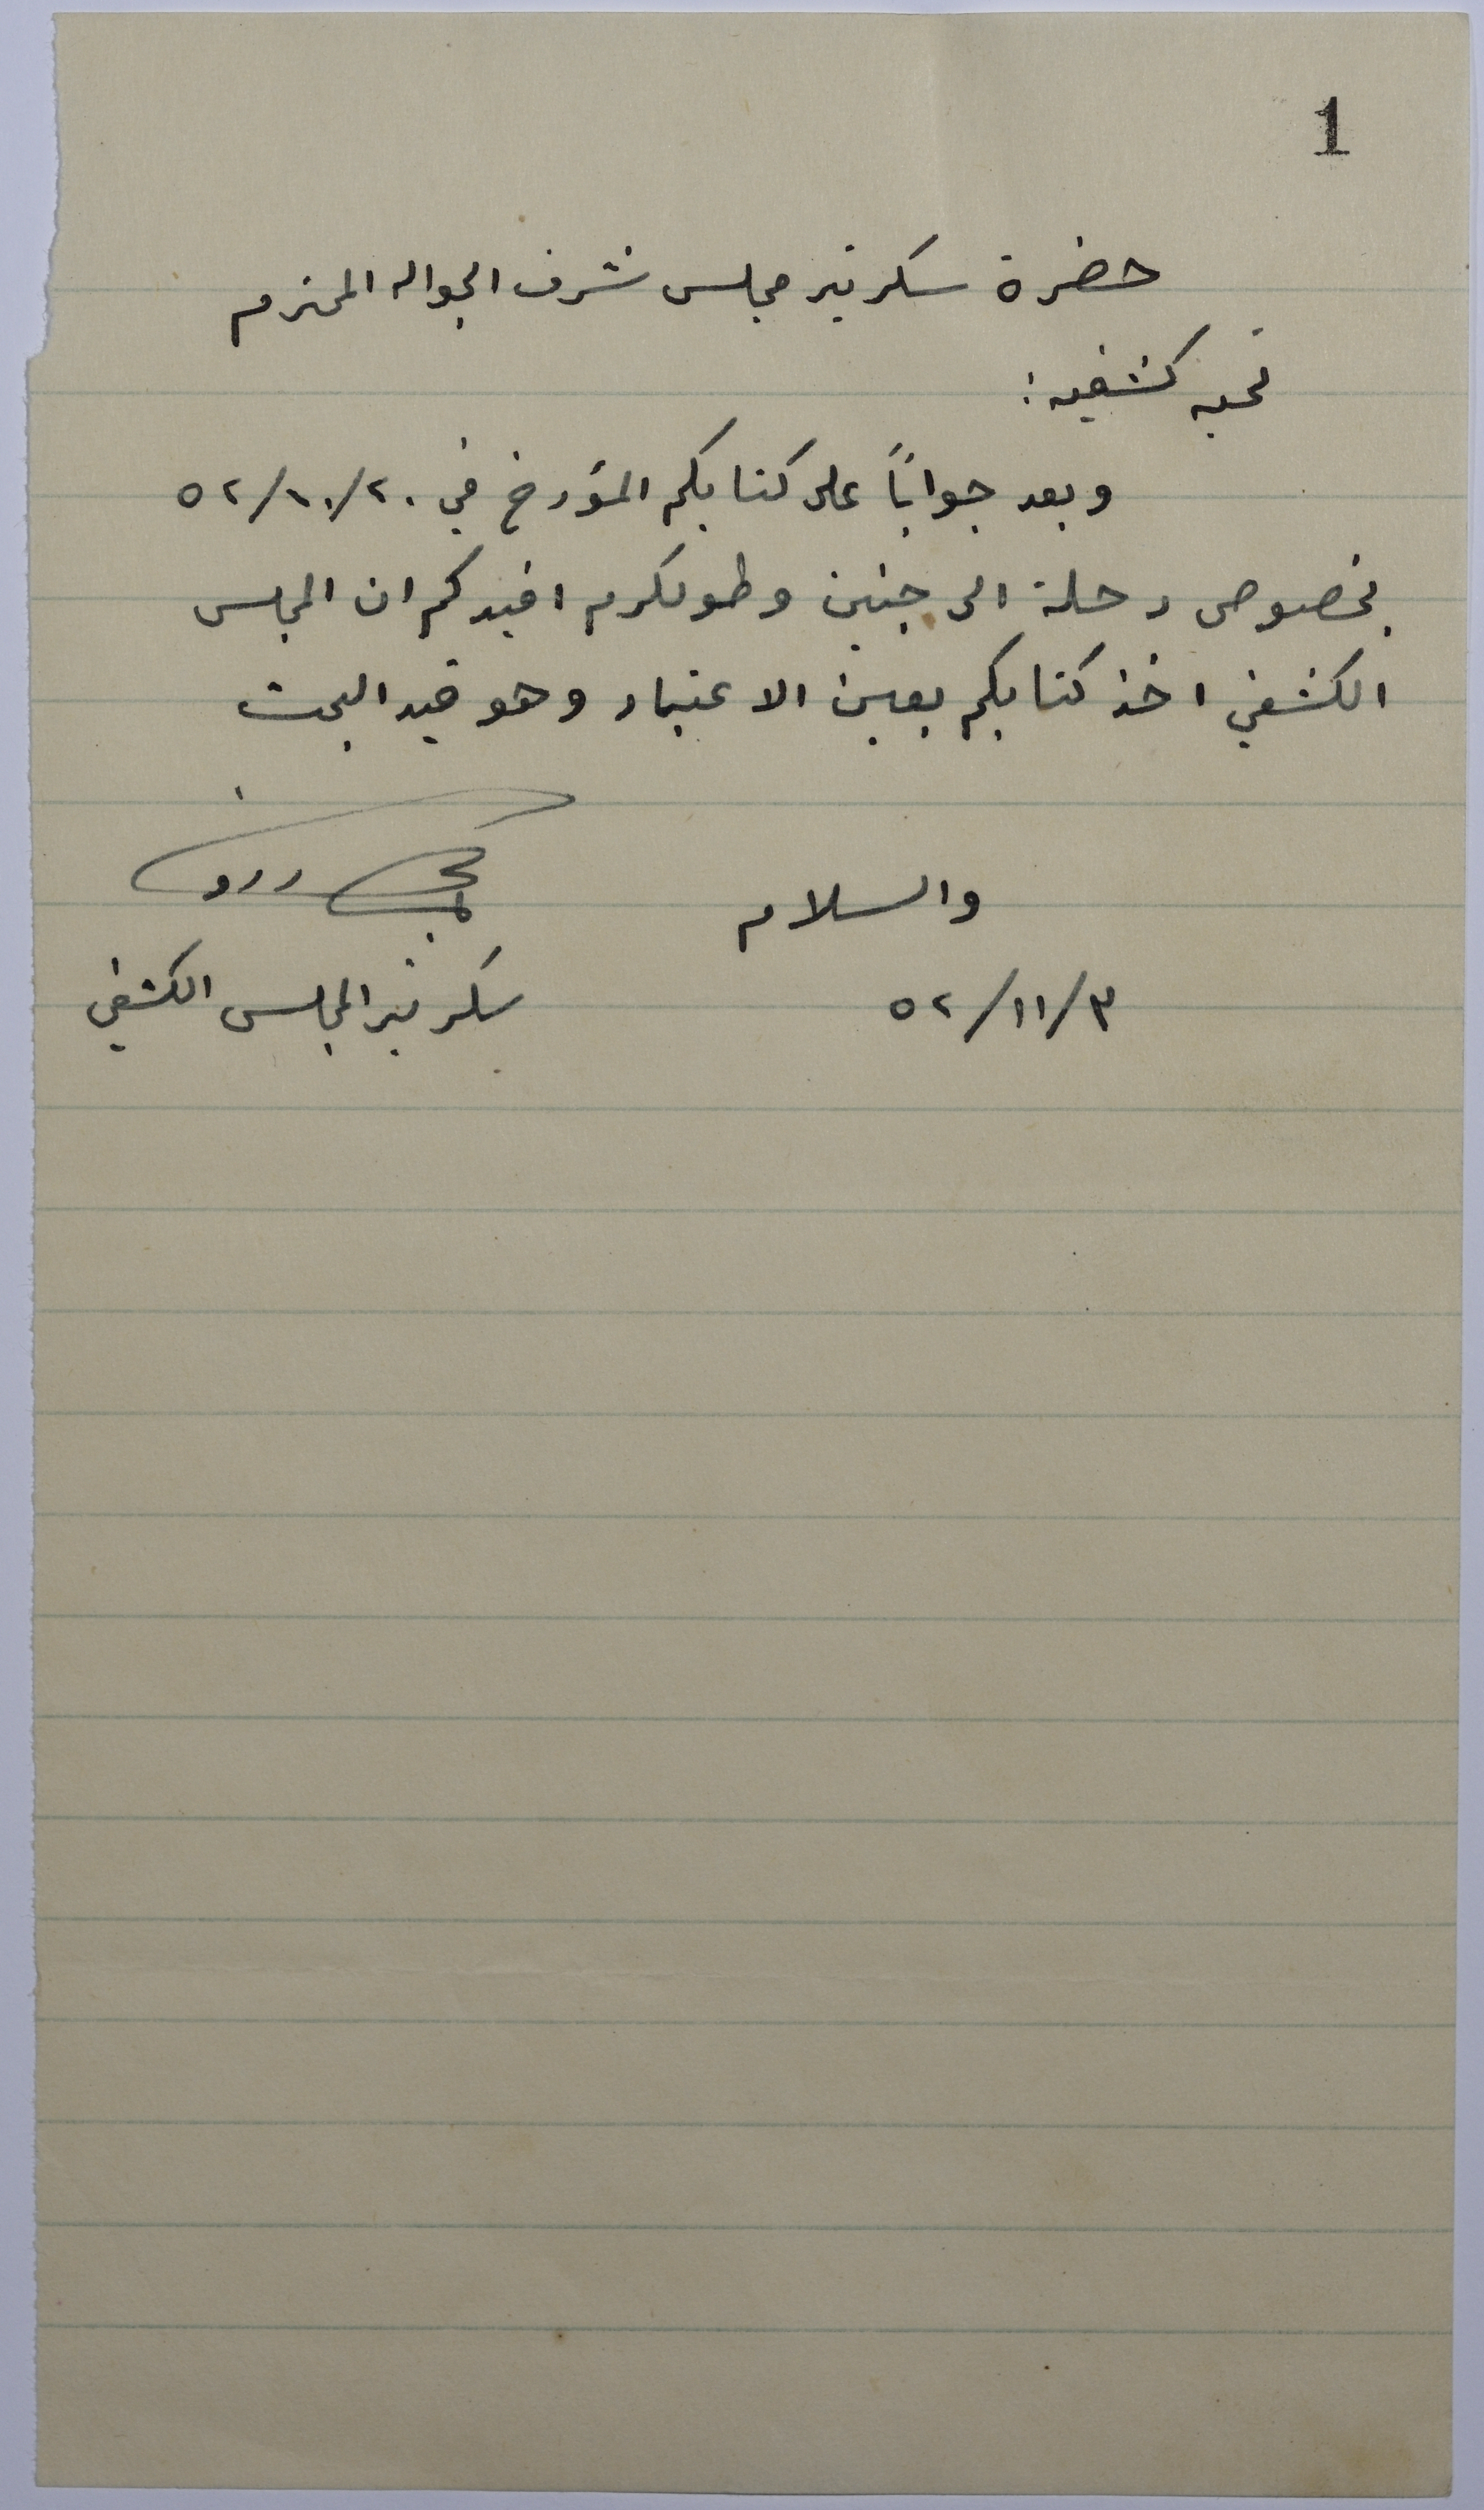 1
حضرة سكرتير مجلس شرف الجواله المحترم
تحيه كشفيه:
وبعد جواباً على كتابكم المؤرخ في ٥٢/١٠/٢٠
بخصوص رحلة الى جنين وطولكرم افيدكم ان المجلس
الكشفي اخذ كتابكم بعين الاعتبار وهو قيد البحث
والسلام
٥٢/١١/٣
سكرتير المجلس الكشفي